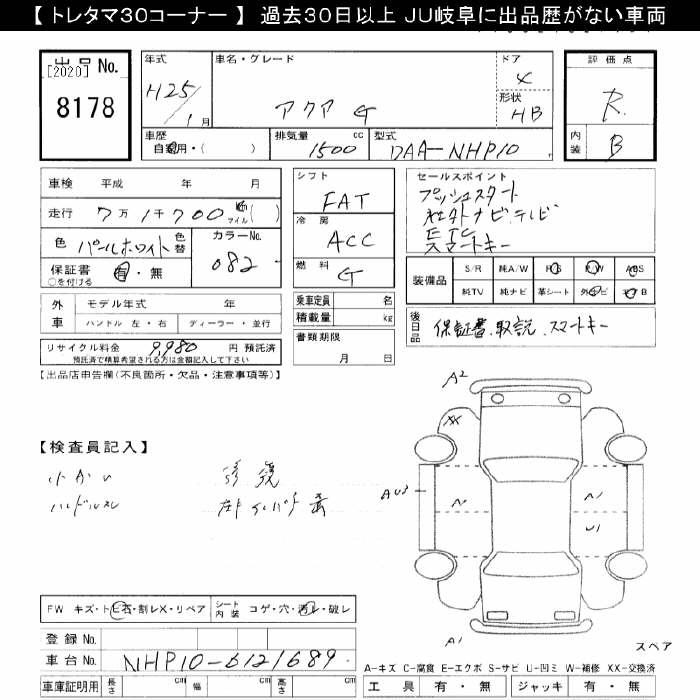 【 トレタマ30コーナー 】 過去30日以上 JU岐阜に出品歴がない車両
出品 No.
[2020]
8178
年式
H25/1月
車名・グレード
アクア G
ドア
4
形状
HB
評価点
R
内装
B
車歴
自家用・( )
排気量 cc
1500
型式
DAA-NHP10
車検 平成 年 月
走行 7万1千700 km マイル ( )
色 パールホワイト 色替
カラーNo.
082
保証書 有・無
○を付ける
外車 モデル年式 年
ハンドル 左・右 ディーラー・並行
リサイクル料金 9,980 円 預託済
預託済で精算希望される方は金額記入して下さい
シフト
FAT
冷房
ACC
燃料
G
乗車定員 名
積載量 kg
書類期限
月 日
セールスポイント
プッシュスタート
社外ナビ・テレビ
ETC
スマートキー
装備品
S/R 純A/W P/S P/W ABS
純TV 純ナビ 革シート 外ナビ エアB
後日品 保証書、取説、スマートキー
【出品店申告欄(不良箇所・欠品・注意事項等)】
【検査員記入】
小キズ 修復
ハンドルスレ
A2
XX
AU3
A1
U1
A1
スペア
FW キズ・トビ石・割レX・リペア
シート内装 コゲ・穴・汚レ・破レ
登録 No.
車台 No. NHP10-6121689
車庫証明用 長さ cm 幅 cm 高さ cm
A-キズ C-腐食 E-エクボ S-サビ U-凹ミ W-補修 XX-交換済
工具 有・無 ジャッキ 有・無